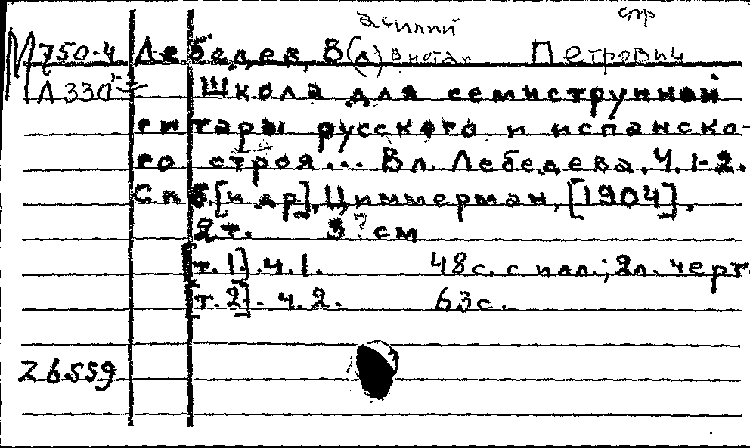 асилий стр
М 750-4 Лебедев, В(л) Петрович
Л 330 Школа для семиструнной
гитары русского и испанско-
го строя... Вл. Лебедева. Ч. 1-2.
Спб. [и др], Циммерман, [1904].
2 т. 3? см
[т. 1]. ч. 1. 48 с. с илл.; 2 л. черт
[т. 2]. ч. 2. 63 с.
Z 6559